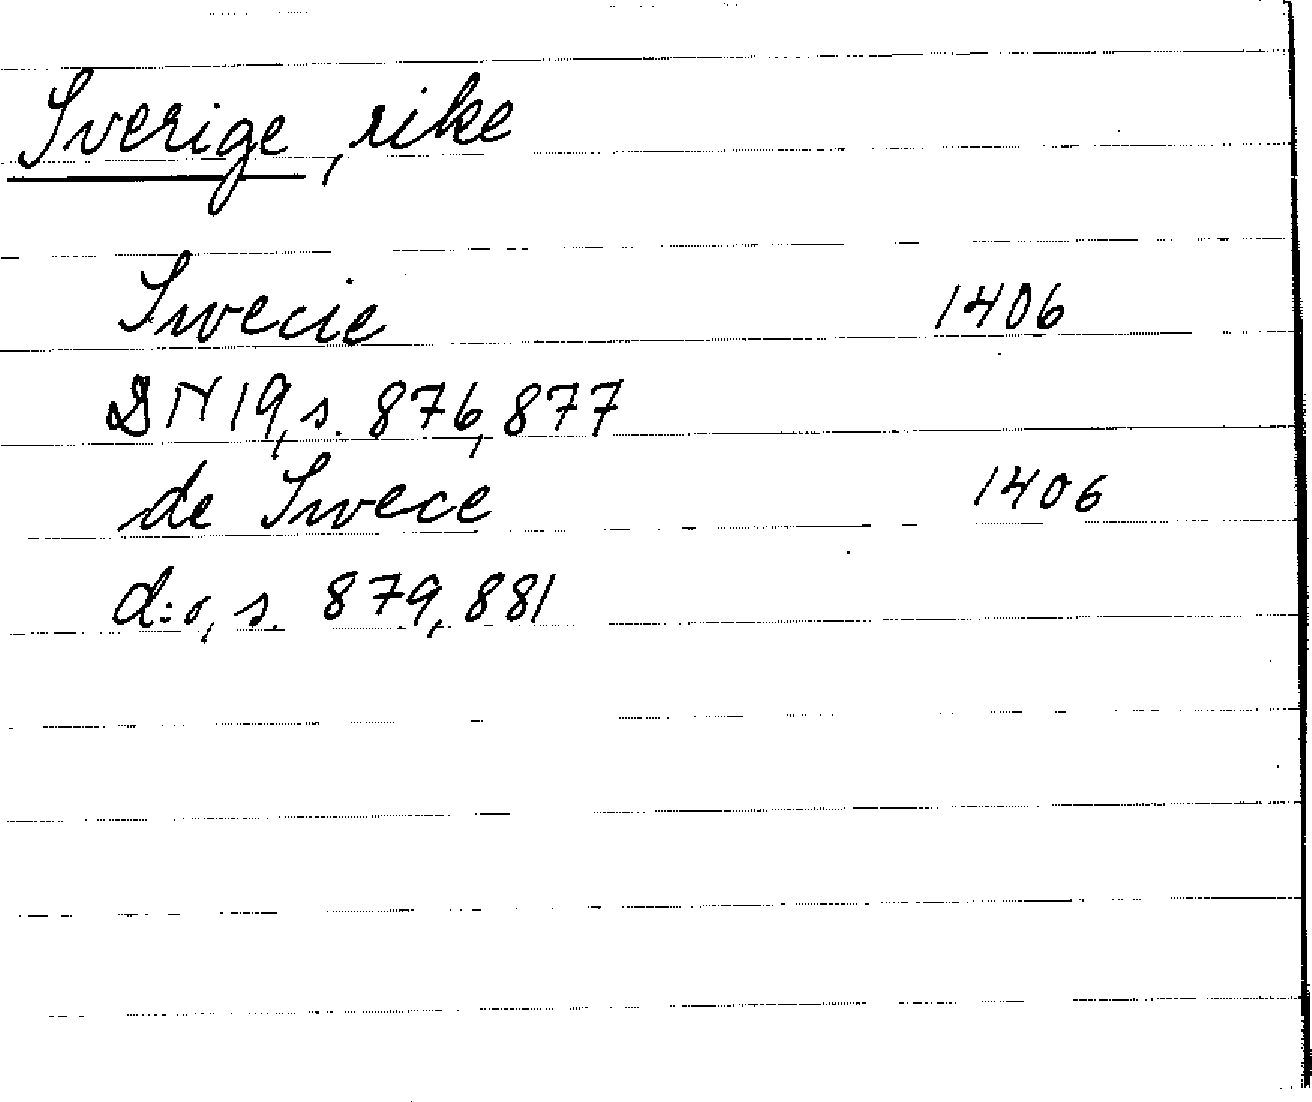 Sverige, rike
Swecie 1406
DN 19, s. 876, 877
de Swece 1406
d:o, s. 879, 881